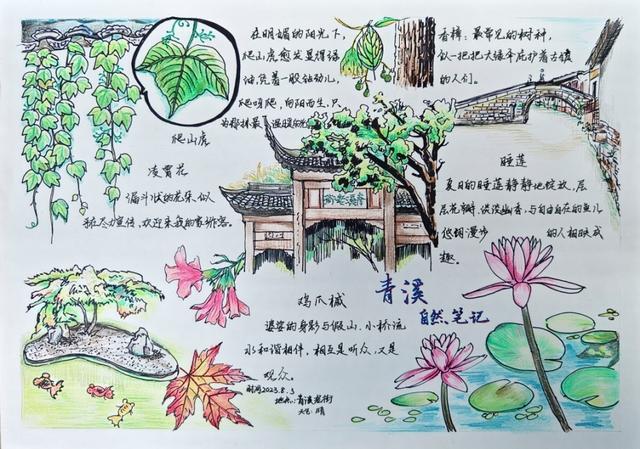 在明媚的阳光下,
爬山虎愈发显得绿
油,凭着一股钻劲儿,
爬呀爬,向阳而生,只
爬山虎
香樟:最常见的树种,
似一把把大绿伞庇护着古镇
的人们。
凌霄花
漏斗状的花朵似
在尽力宣传,欢迎来我的家游客。
青溪老街
睡莲
夏日的睡莲静静地绽放,层
层花瓣,淡淡幽香,与自由自在的鱼儿
悠闲漫步的人相映成
趣。
鸡爪槭
婆娑的身影与假山、小桥流
水和谐相伴,相互是听众,又是
观众。
时间2023.8.5
地点:青溪老街
天气:晴
青溪
自然笔记